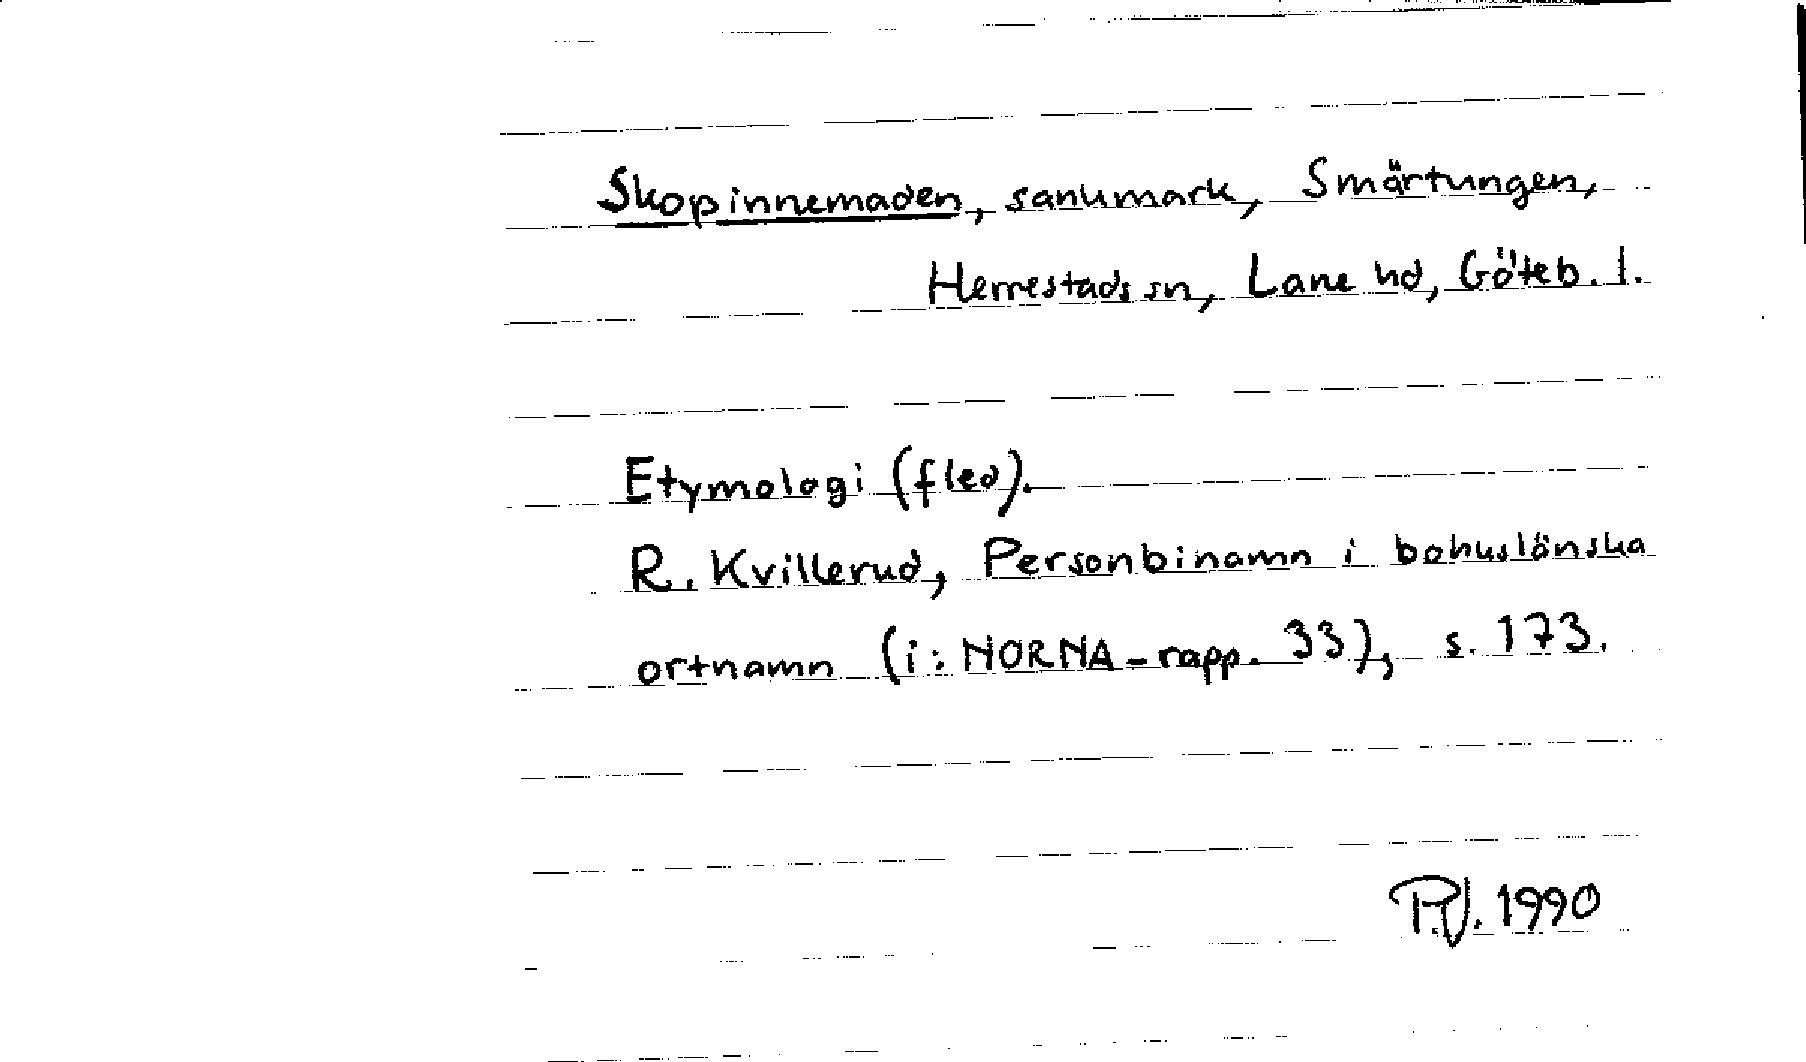 Skopinnemaden, sankmark, Smärtungen,
Herrestads sn, Lane hd, Göteb. l.
Etymologi (fled).
R. Kvillerud, Personbinamn i bohuslänska
ortnamn (i: NORNA-rapp. 33), s. 173.
1990